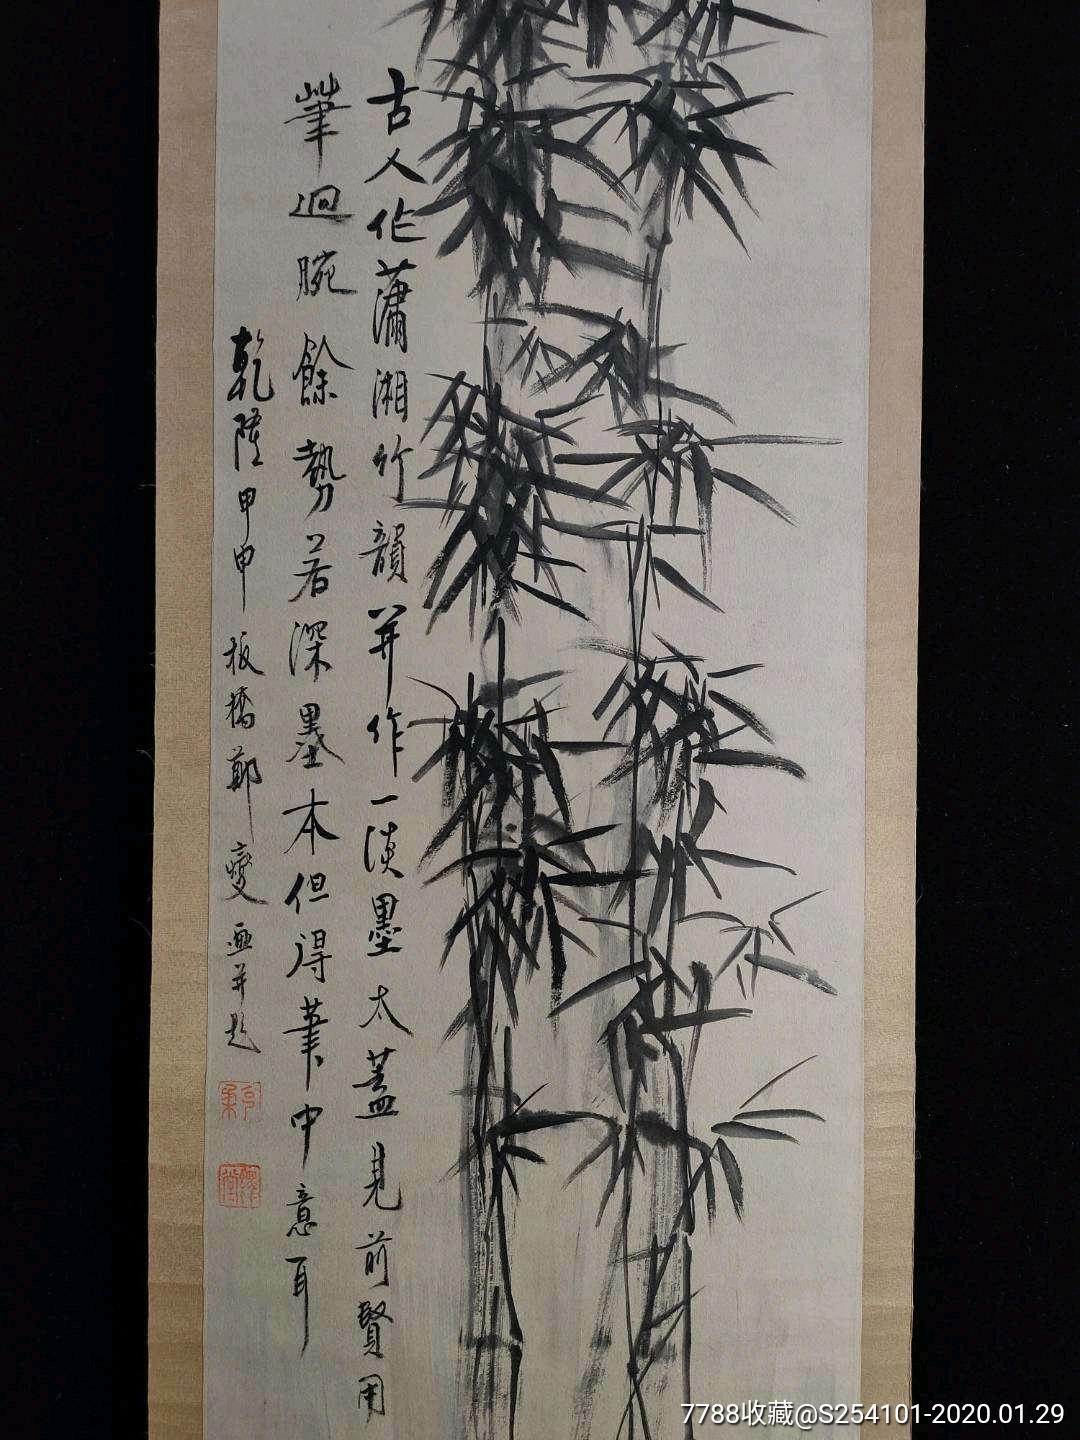 古人作瀟湘竹韻并作一淡墨太蓋見前賢用
筆迴腕餘勢若深墨本但得筆中意耳
乾隆甲申 板橋鄭燮畫并題
7788收藏@S254101-2020.01.29